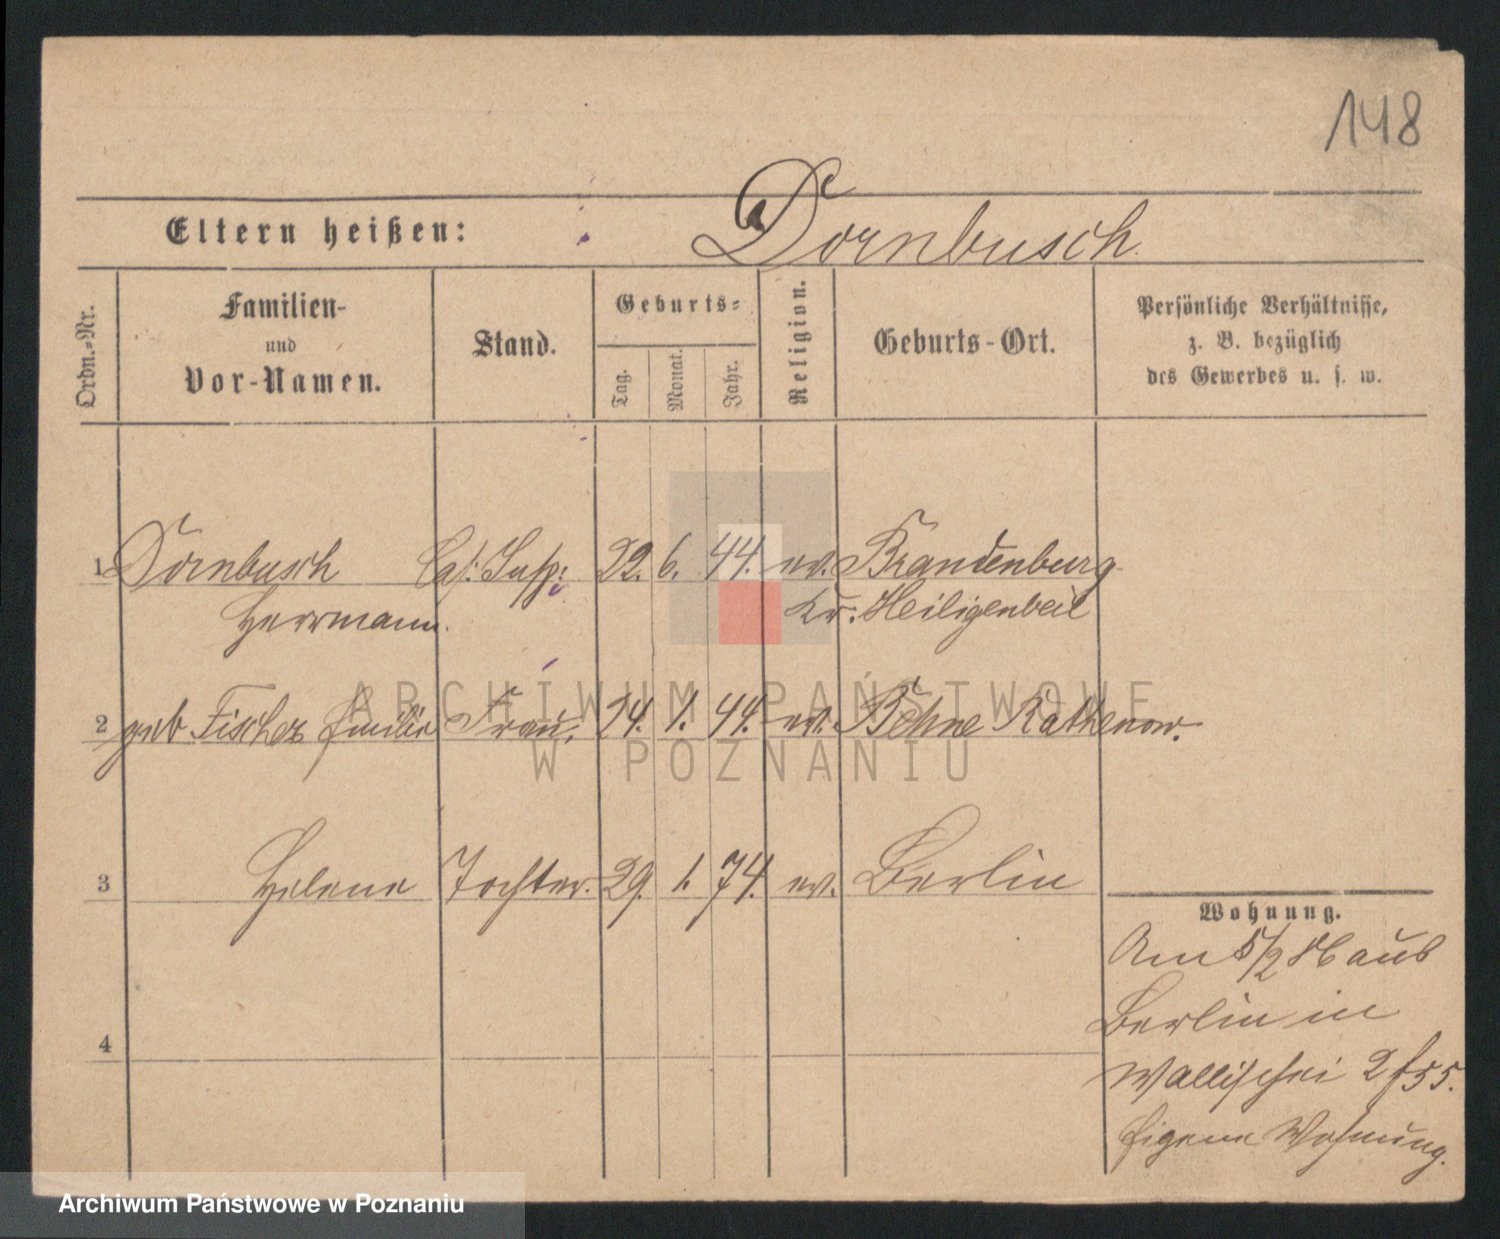 148
Eltern heißen: Dornbusch.
Ordn.-Nr.
Familien-
und
Vor-Namen.
Stand.
Geburts-
Tag.
Monat.
Jahr.
Religion.
Geburts-Ort.
Persönliche Verhältnisse,
z. B. bezüglich
des Gewerbes u. s. w.
1 Dornbusch Cas: Insp: 22. 6. 44. ev. Brandenburg
Herrmann. Kr: Heiligenbeil
2 geb Fischer Emilie Frau, 24. 1. 44. ev. Böhne Rathenow.
3 Helene Tochter. 29. 1. 74. ev. Berlin
4
Wohnung.
Am 5/2 86 aus
Berlin in
Wallischei 2 f 55.
Eigene Wohnung.
ARCHIWUM PAŃSTWOWE
W POZNANIU
Archiwum Państwowe w Poznaniu